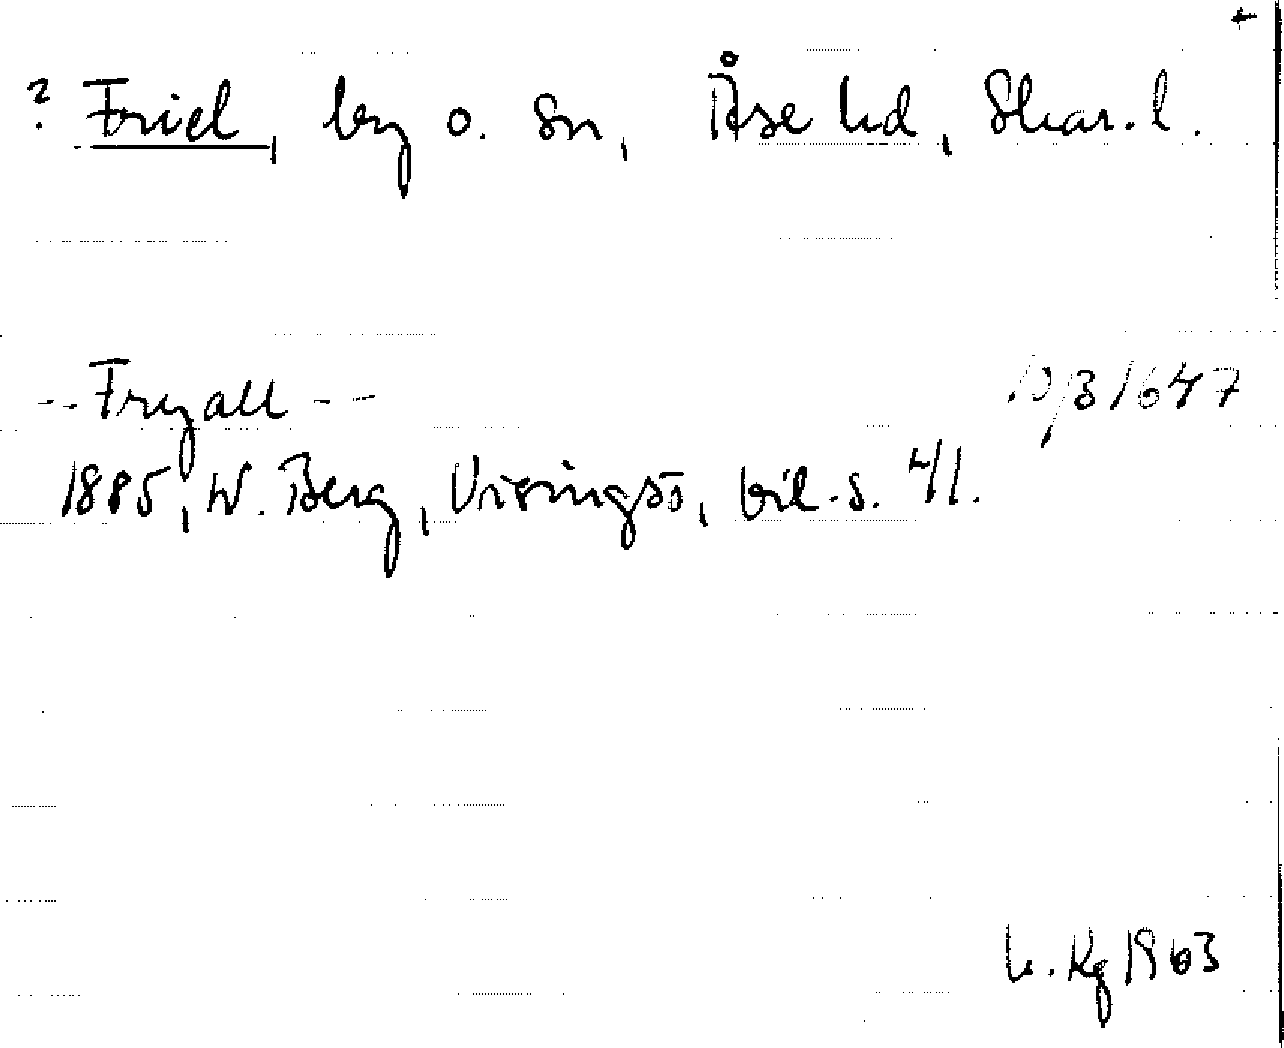 +
? Friel, by o. sn, Åse hd, Skar. l.
- - Fryall - - 10/3 1647
1885, W. Berg, Visingsö, bil. s. 41.
Kg 1963